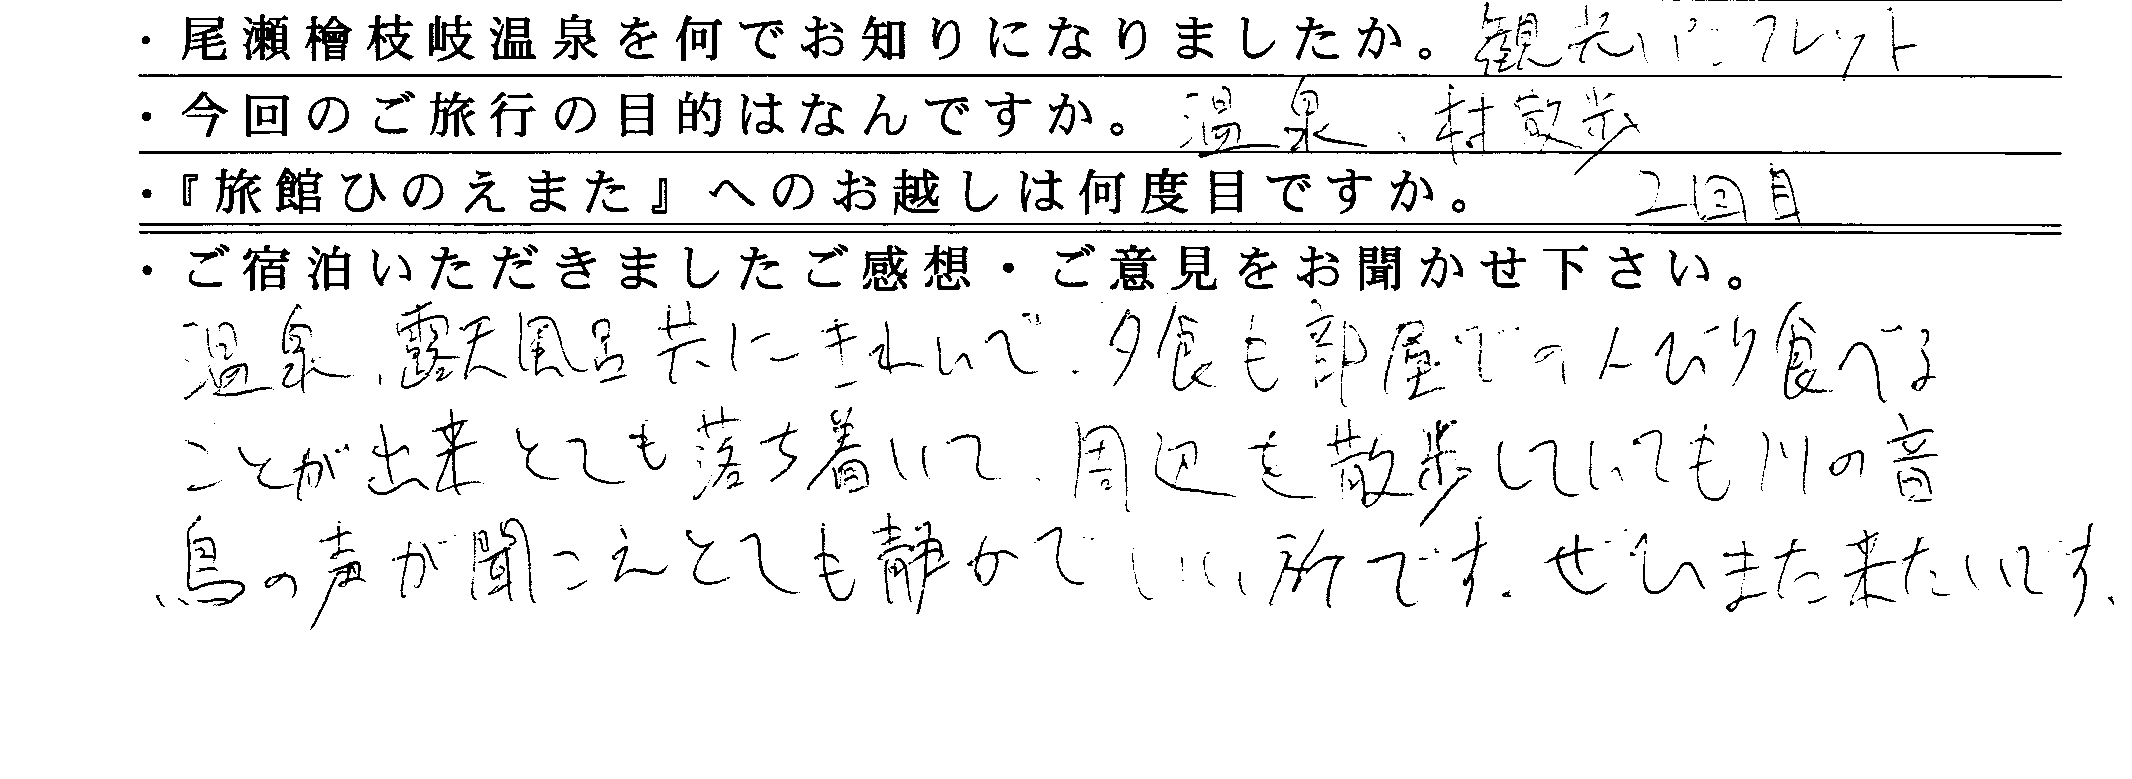 ・尾瀬檜枝岐温泉を何でお知りになりましたか。観光パンフレット
・今回のご旅行の目的はなんですか。温泉、村散歩
・『旅館ひのえまた』へのお越しは何度目ですか。 2回目
・ご宿泊いただきましたご感想・ご意見をお聞かせ下さい。
温泉、露天風呂共にきれいで、夕食も部屋でのんびり食べる
ことが出来とても落ち着いて、周辺を散歩していても川の音
鳥の声が聞こえとても静かでいい所です。ぜひまた来たいです。